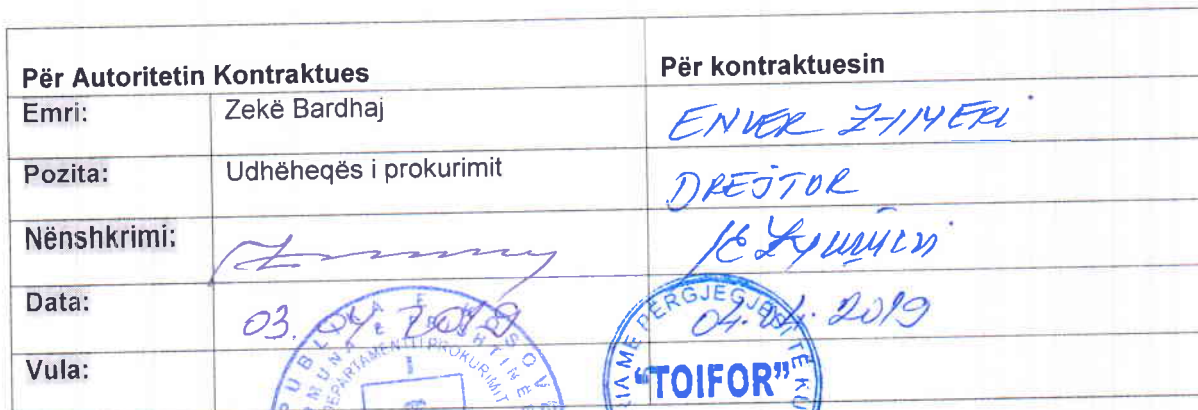 Për Autoritetin Kontraktues Për kontraktuesin
Emri: Zekë Bardhaj ENVER ZYMERI
Pozita: Udhëheqës i prokurimit DREJTOR
Nënshkrimi:
Data: 03. 04. 2019 04.04.2019
Vula:
DEPARTAMENTI I PROKURIMIT
ME PERGJEGJESI TË KU
"TOIFOR"